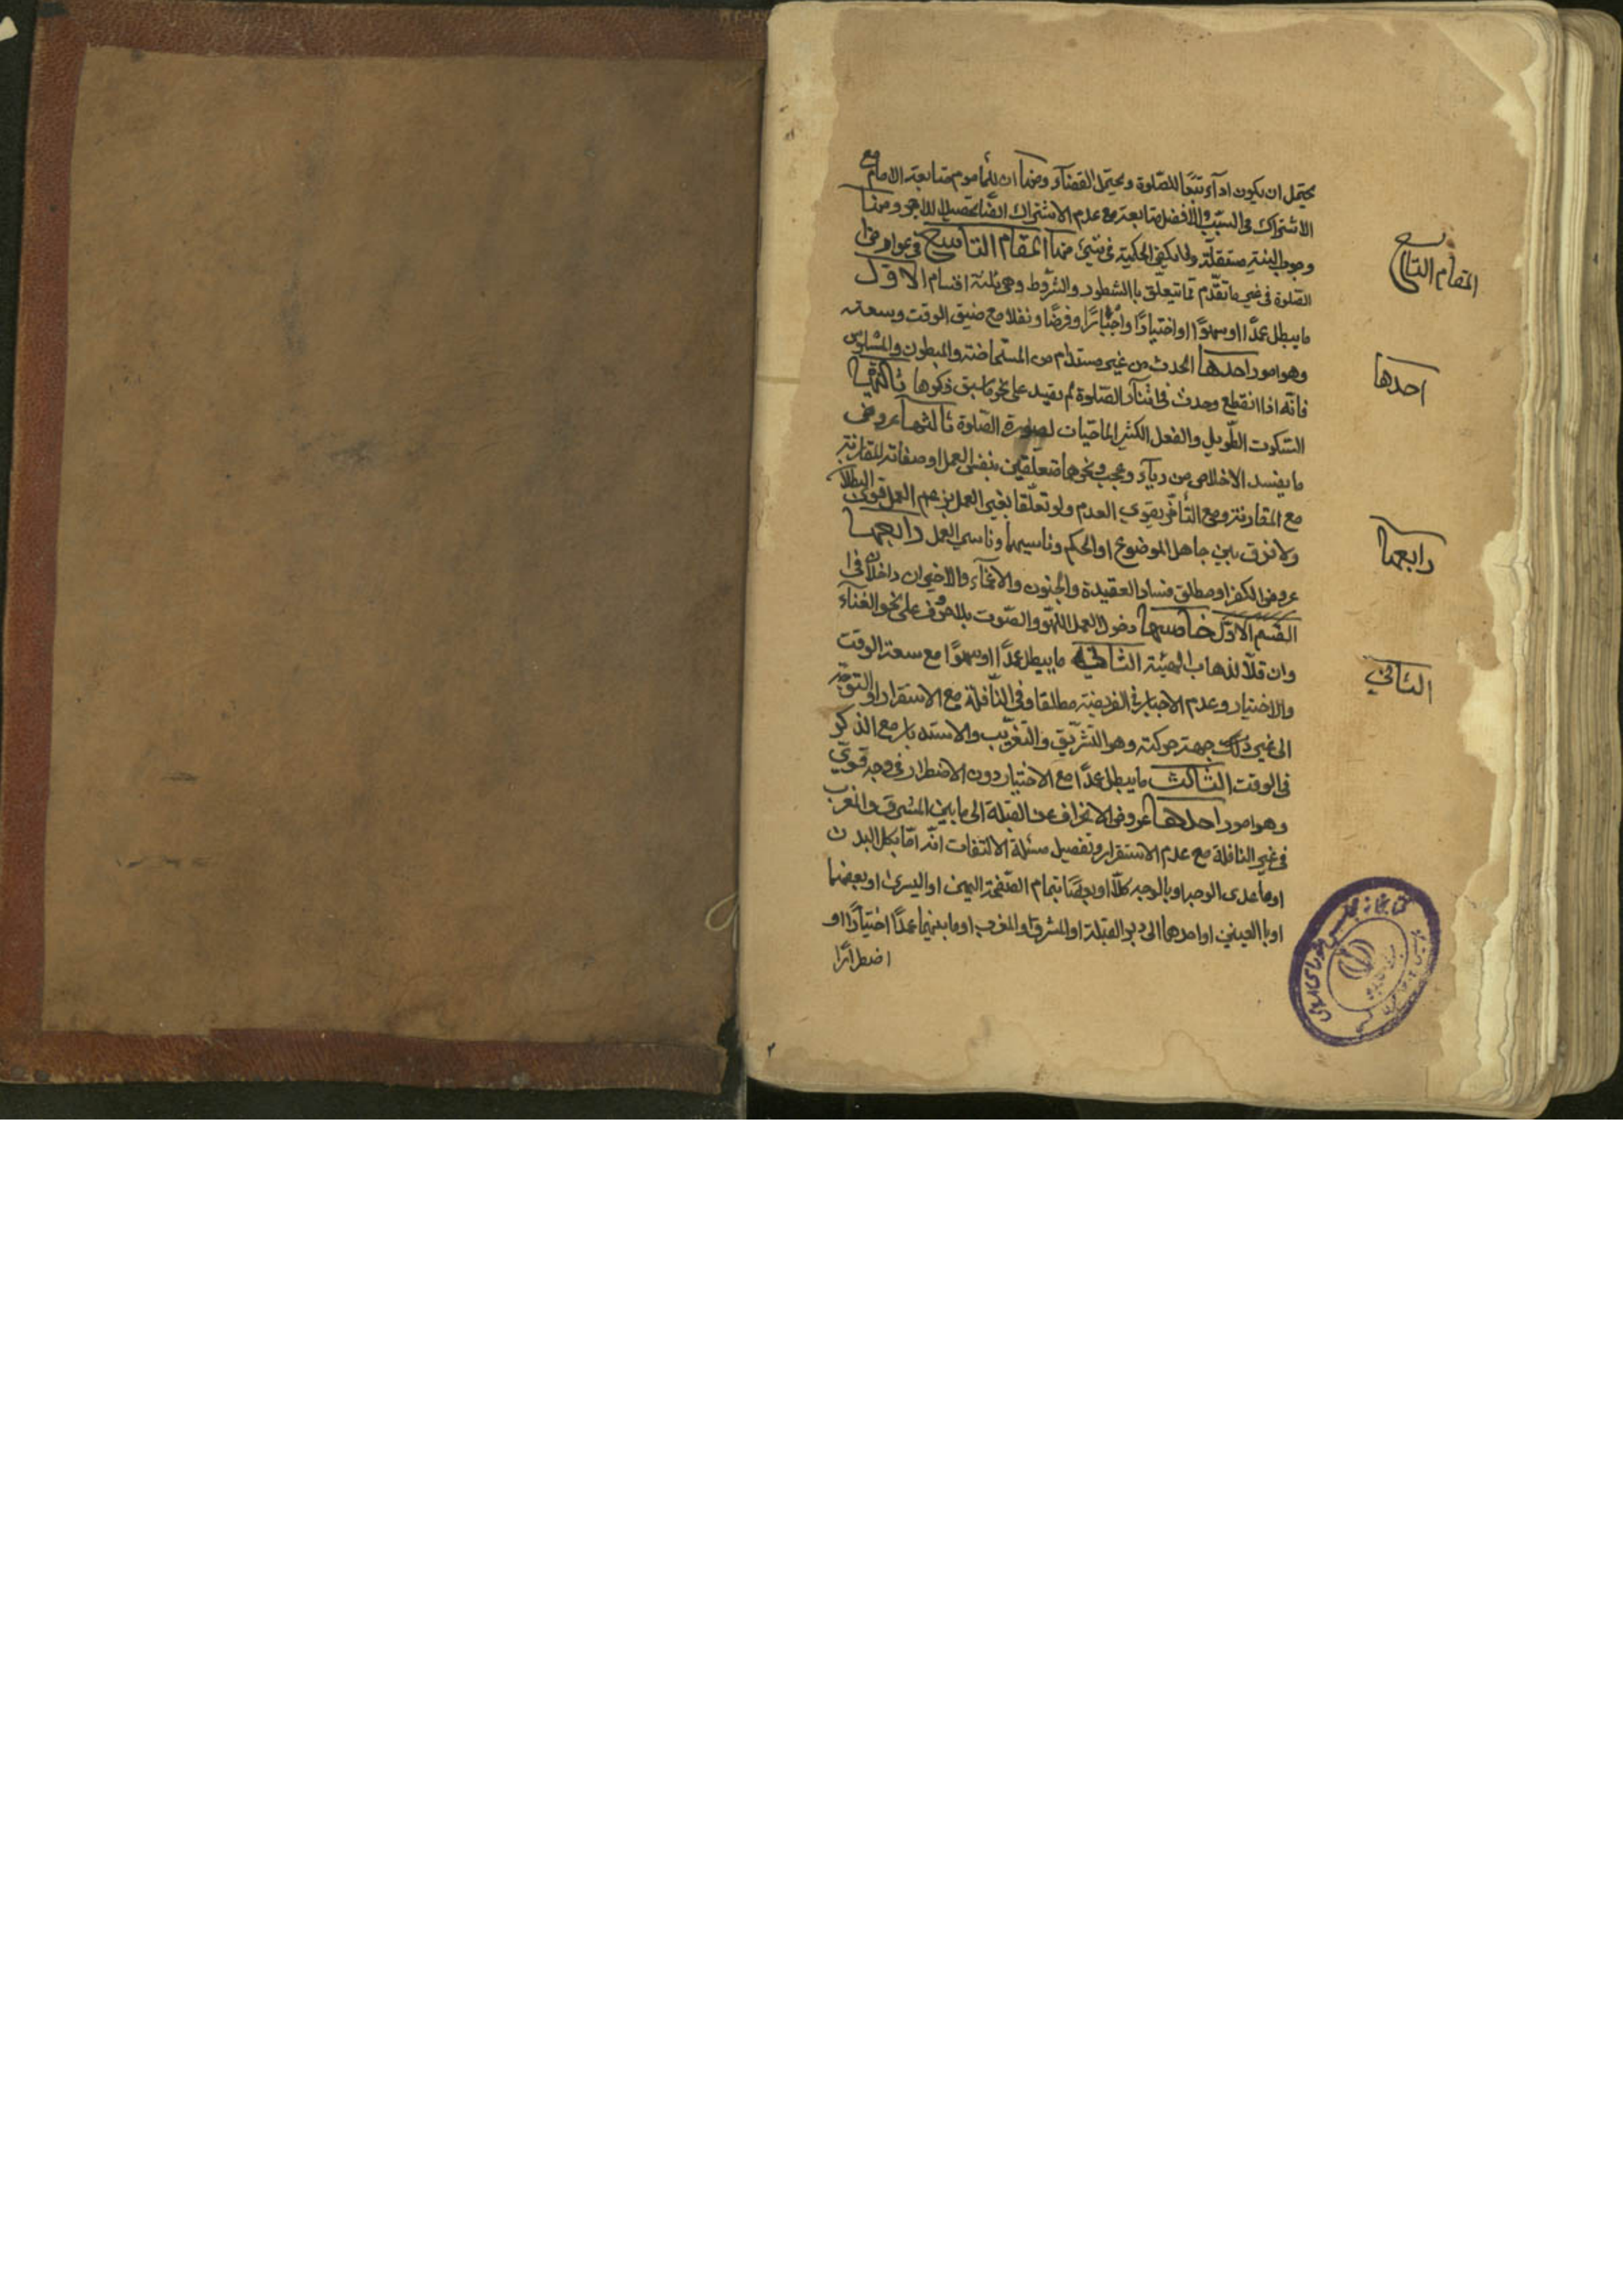 يحتمل ان يكون اداء تبعا للصلوة ويحتمل القضاء ومنها ان للماموم متابعة الامام مع
الاشتراك فى السبب والافضل متابعته مع عدم الاشتراك ايضا تحصيلا للاجر ومنها
وجوب النية مستقلة ولا يكفى الحكمية فى شئ منها المقام التاسع فى عوارض
الصلوة فى غير ما تقدم مما يتعلق بالشطور والشروط وهى ثلثة اقسام الاول
ما يبطل عمدا او سهوا او اختيارا واجبارا وفرضا ونفلا مع ضيق الوقت وسعته
وهو امور احدها الحدث من غير مستدام من المستحاضة والمبطون والمسلوس
فانه اذا انقطع وحدث فى اثناء الصلوة لم يفسد على نحو ما سبق ذكرها ثانيها
السكوت الطويل والفعل الكثير الماحيان لصورة الصلوة ثالثها عروض
ما يفسد الاخلاص من رياء وعجب ونحوهما متعلقين بنفس العمل او صفاته المقارنة
مع المقارنة ومع التأخر يقوى العدم ولو تعلقا بغير العمل بزعم العمل قوى البطلان
ولا فرق بين جاهل الموضوع او الحكم وناسيهما وناسى العمل رابعها
عروض الكفر او مطلق فساد العقيدة والجنون والاغماء والاخيران داخلان فى
القسم الاول خامسها دخول العمل اللهو والصوت بالحروف على نحو الغناء
وان قلا لذهاب الهيئة الثانى ما يبطل عمدا او سهوا مع سعة الوقت
والاختيار وعدم الاجبار فى الفريضة مطلقا وفى النافلة مع الاستقرار او التوجه
الى غير ذلك جهة حركته وهو التشريق والتغريب والاستدبار مع الذكر
فى الوقت الثالث ما يبطل عمدا مع الاختيار دون الاضطرار فى وجه قوى
وهو امور احدها عروض الانحراف عن القبلة الى ما بين المشرق والمغرب
فى غير النافلة مع عدم الاستقرار وتفصيل مسئلة الالتفات انه اما بكل البدن
او ما عدى الوجه او بالوجه كلا او بعضا بتمام الصفحة اليمنى او اليسرى او بعضها
او با العينين او احدهما الى دبر القبلة او المشرق والمغرب او ما بينهما عمدا اختيارا او
اضطرارا
المقام التاسع
احدها
رابعها
الثانى
كتابخانه مجلس شوراى
٢